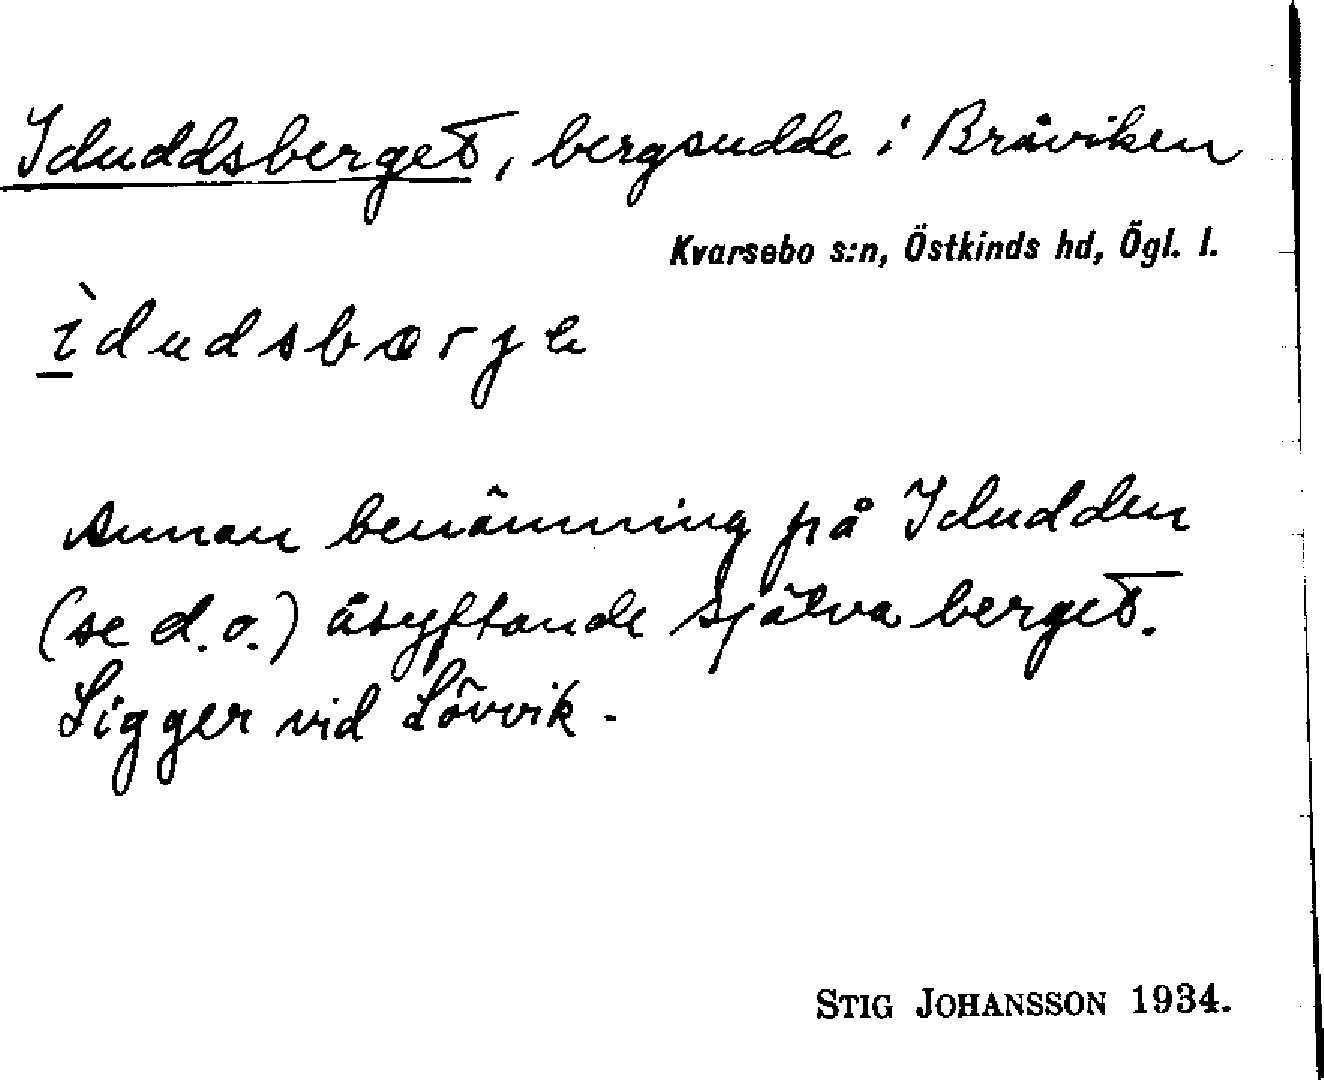 Iduddsberget, bergsudde i Bråviken
Kvarsebo s:n, Östkinds hd, Ögl. l.
ìdudsbærje
Annan benämning på Idudden
(se d.o.) åsyftande själva berget.
Ligger vid Lövvik.
STIG JOHANSSON 1934.